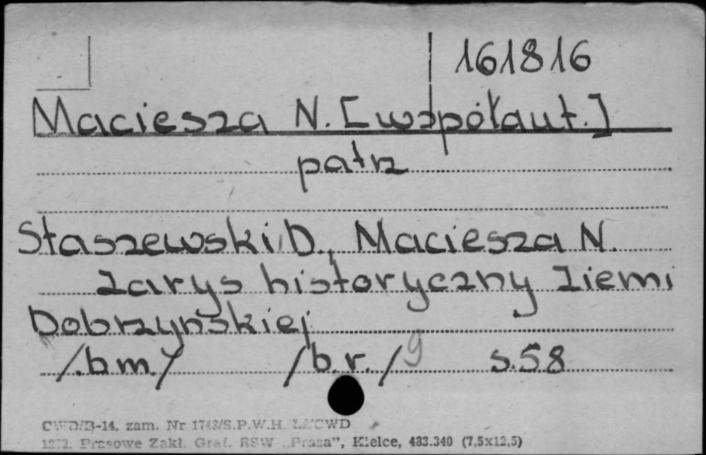 161816
Maciesza N. [współaut.]
patrz
Staszewski D., Maciesza N.
Zarys historyczny Ziemi
Dobrzyńskiej
/b.m./ /b.r./ 9 s.58
CWD/B-14, zam. Nr 1743/S.P.W.H. CWD
Prasowe Zakł. Graf. RSW „Prasa”, Kielce, 483.340 (7,5x12,5)